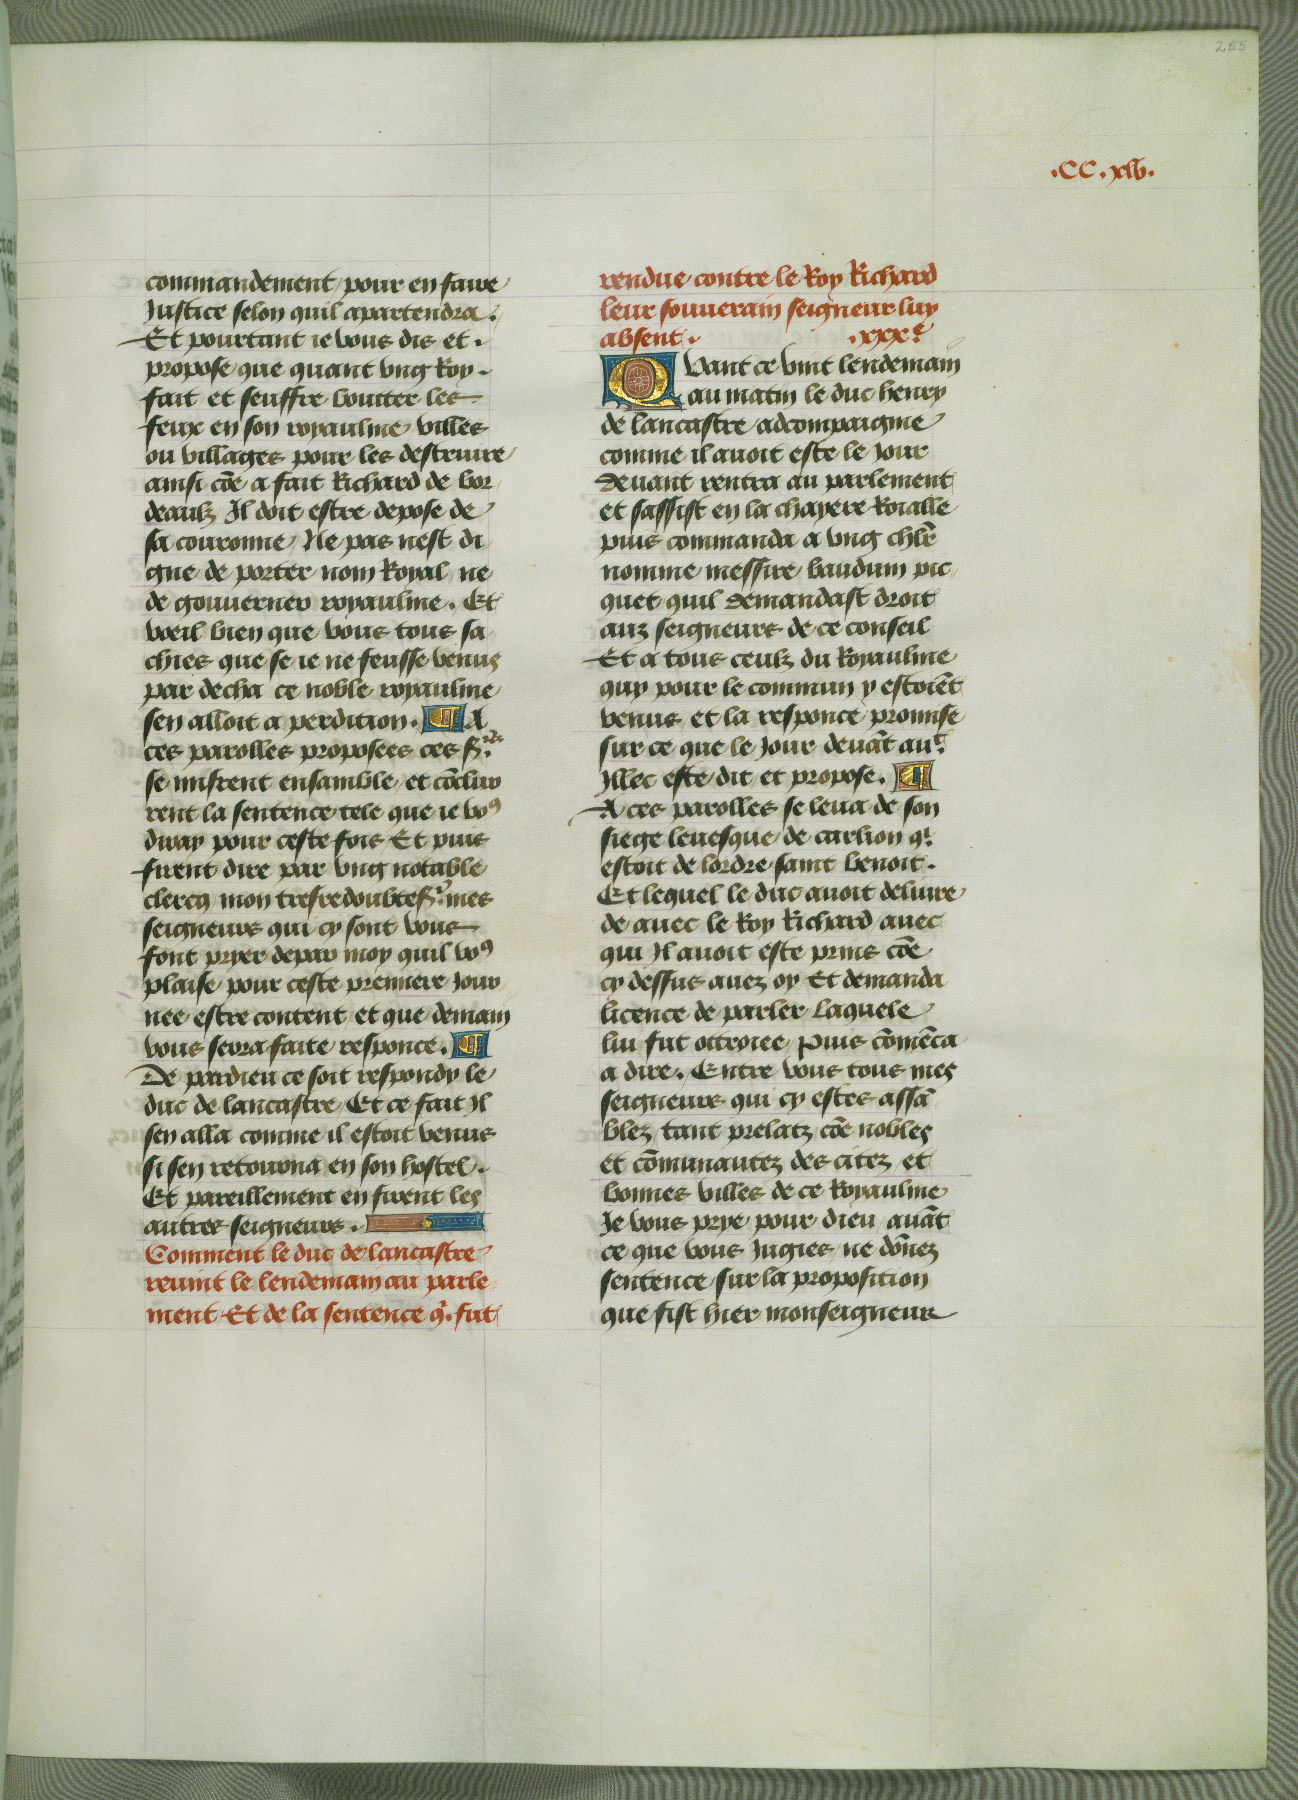 255
.CC.xlv.
commandement pour en faire
Justice selon quil apartendra.
Et pourtant ie vous dis et.
propose que quant vng Roy.
fait et seuffre boutter les
feux en son royaulme villes
ou villages pour les destruire
ainsi cōe a fait Richard de bor
deaulx Il doit estre depose de
sa couronne Ne pas nest di
gne de porter nom Royal ne
de gouuerner royaulme. Et
voeil bien que vous tous sa
chies que se ie ne feusse venus
par decha ce noble royaulme
sen alloit a perdition. A
ces parolles proposees ces srs
se mirent ensamble et cōclur
rent la sentence tele que ie voꝰ
diray pour ceste fois Et puis
firent dire par vng notable
clercq mon tresredoubte sr. mes
seigneurs qui cy sont vous
font pryer depar moy quil voꝰ
plaise pour ceste premiere Jour
nee estre content et que demain
vous serra faite responce.
De pardieu ce soit respondy le
duc de lancastre Et ce fait Il
sen alla comme il estoit venus
si sen retourna en son hostel.
Et pareillement en firent les
autres seigneurs.
Comment le duc de lancastre
reuint le lendemain au parle
ment Et de la sentence q̄. fut
rendue contre le Roy Richard
leur souuerain seigneur luy
absent. .xxxe.
Quant ce vint lendemain
au matin le duc henry
de lancastre adcompaignie
comme il auoit este le Jour
deuant rentra au parlement
et sassist en la chayere Roialle
puis commanda a vng chlr̄
nomme messire bauduin pic
quet quil demandast droit
aux seigneurs de ce conseil
Et a tous ceulx du Royaulme
quy pour le commun y estoiēt
venus et la responce promise
sur ce que le Jour deuāt aut.
Illec este dit et propose.
A ces parolles se leua de son
siege leuesque de carlion qi.
estoit de lordre saint benoit.
Et lequel le duc auoit deliure
de auec le Roy Richard auec
qui Il auoit este prins cōe
cy dessus auez oy Et demanda
licence de parler Laquele
lui fut ottroiee Puis cōmēca
a dire. Entre vous tous mes
seigneurs qui cy estes assā
blez tant prelatz cōe nobles
et cōmunautez des citez et
bonnes villes de ce Royaulme
Je vous prye pour dieu auāt
ce que vous Jugies ne dōnez
sentence sur la proposition
que fist hier monseigneur